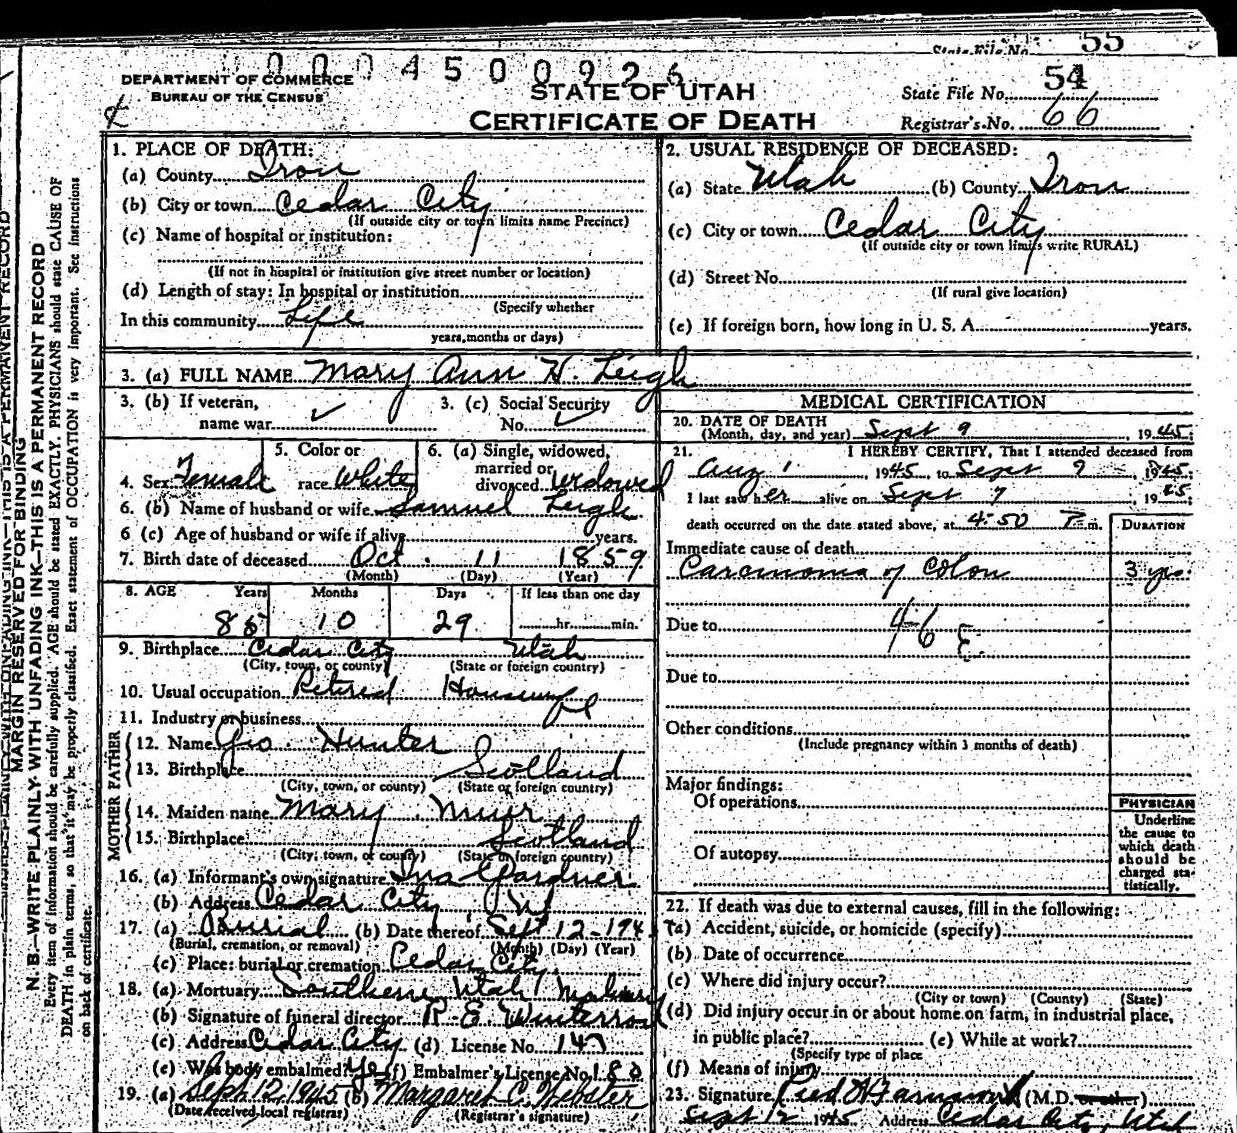 State File No. 55
0004500926
DEPARTMENT OF COMMERCE
BUREAU OF THE CENSUS
STATE OF UTAH
CERTIFICATE OF DEATH
State File No. 54
Registrar's No. 66
MARGIN RESERVED FOR BINDING
N. B.—WRITE PLAINLY WITH UNFADING INK—THIS IS A PERMANENT RECORD
Every item of information should be carefully supplied. AGE should be stated EXACTLY. PHYSICIANS should state CAUSE OF
DEATH in plain terms, so that it may be properly classified. Exact statement of OCCUPATION is very important. See Instructions
on back of certificate.
1. PLACE OF DEATH:
(a) County Iron
(b) City or town Cedar City
(If outside city or town limits name Precinct)
(c) Name of hospital or institution:
(If not in hospital or institution give street number or location)
(d) Length of stay: In hospital or institution
(Specify whether
In this community Life
years, months or days)
2. USUAL RESIDENCE OF DECEASED:
(a) State Utah (b) County Iron
(c) City or town Cedar City
(If outside city or town limits write RURAL)
(d) Street No.
(If rural give location)
(e) If foreign born, how long in U. S. A. years.
3. (a) FULL NAME Mary Ann H. Leigh
3. (b) If veteran,
name war ✓
3. (c) Social Security
No. ✓
4. Sex Female
5. Color or
race White
6. (a) Single, widowed,
married or
divorced Widowed
6. (b) Name of husband or wife Samuel Leigh
6 (c) Age of husband or wife if alive years.
7. Birth date of deceased Oct. 11 1859
(Month) (Day) (Year)
8. AGE Years Months Days If less than one day
85 10 29 hr. min.
9. Birthplace Cedar City Utah
(City, town, or county) (State or foreign country)
10. Usual occupation Retired Housewife
11. Industry or business
FATHER
12. Name Geo. Hunter
13. Birthplace Scotland
(City, town, or county) (State or foreign country)
MOTHER
14. Maiden name Mary Muir
15. Birthplace Scotland
(City, town, or county) (State or foreign country)
16. (a) Informant's own signature Ina Gardner
(b) Address Cedar City, Ut
17. (a) Burial (b) Date thereof Sept 12-194
(Burial, cremation, or removal) (Month) (Day) (Year)
(c) Place: burial or cremation Cedar City
18. (a) Mortuary Southern Utah Mortuary
(b) Signature of funeral director R. E. Winterrose
(c) Address Cedar City (d) License No. 147
(e) Was body embalmed? Yes (f) Embalmer's License No. 180
19. (a) Sept 12, 1945 (b) Margaret C. Webster
(Date received, local registrar) (Registrar's signature)
MEDICAL CERTIFICATION
20. DATE OF DEATH
(Month, day, and year) Sept 9, 1945
21. I HEREBY CERTIFY, That I attended deceased from
Aug 1, 1945 to Sept 9, 1945
I last saw her alive on Sept 9, 1945
death occurred on the date stated above, at 4:50 P m.
DURATION
Immediate cause of death
Carcinoma of Colon 3 yrs.
Due to 46 E
Due to
Other conditions
(Include pregnancy within 3 months of death)
Major findings:
Of operations
Of autopsy
PHYSICIAN
Underline
the cause to
which death
should be
charged sta-
tistically.
22. If death was due to external causes, fill in the following:
(a) Accident, suicide, or homicide (specify)
(b) Date of occurrence
(c) Where did injury occur?
(City or town) (County) (State)
(d) Did injury occur in or about home, on farm, in industrial place,
in public place? (e) While at work?
(Specify type of place
(f) Means of injury
23. Signature (M.D. or other)
Sept 12 1945 Address Cedar City, Utah